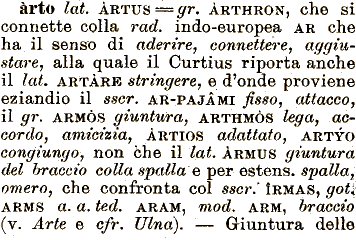 àrto lat. ÀRTUS = gr. ÀRTHRON, che si
connette colla rad. indo-europea AR che
ha il senso di aderire, connettere, aggiu-
stare, alla quale il Curtius riporta anche
il lat. ARTÀRE stringere, e d'onde proviene
eziandio il sscr. AR-PAJÂMI fisso, attacco,
il gr. ARMÒS giuntura, ARTHMÒS lega, ac-
cordo, amicizia, ÀRTIOS adattato, ARTÝO
congiungo, non che il lat. ÀRMUS giuntura
del braccio colla spalla e per estens. spalla,
omero, che confronta col sscr. ÎRMAS, got.
ARMS a. a. ted. ARAM, mod. ARM, braccio
(v. Arte e cfr. Ulna). — Giuntura delle